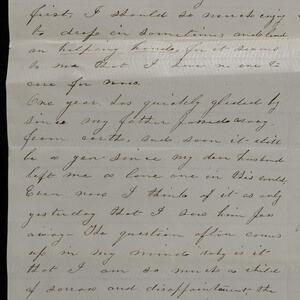 first, I should so much enjoy
to drop in sometimes and lend
an helping hand, for it seems
to me that I have no one to
care for now.
One year has quickly glided by
since my father passed away
from earth, and soon it will
be a year since my dear husband
left me a lone one in this world,
Even now I think of it as only
yesterday that I saw him pass
away. The question often comes
up in my mind why is it
that I am so much a child
of sorrow and disappointment the